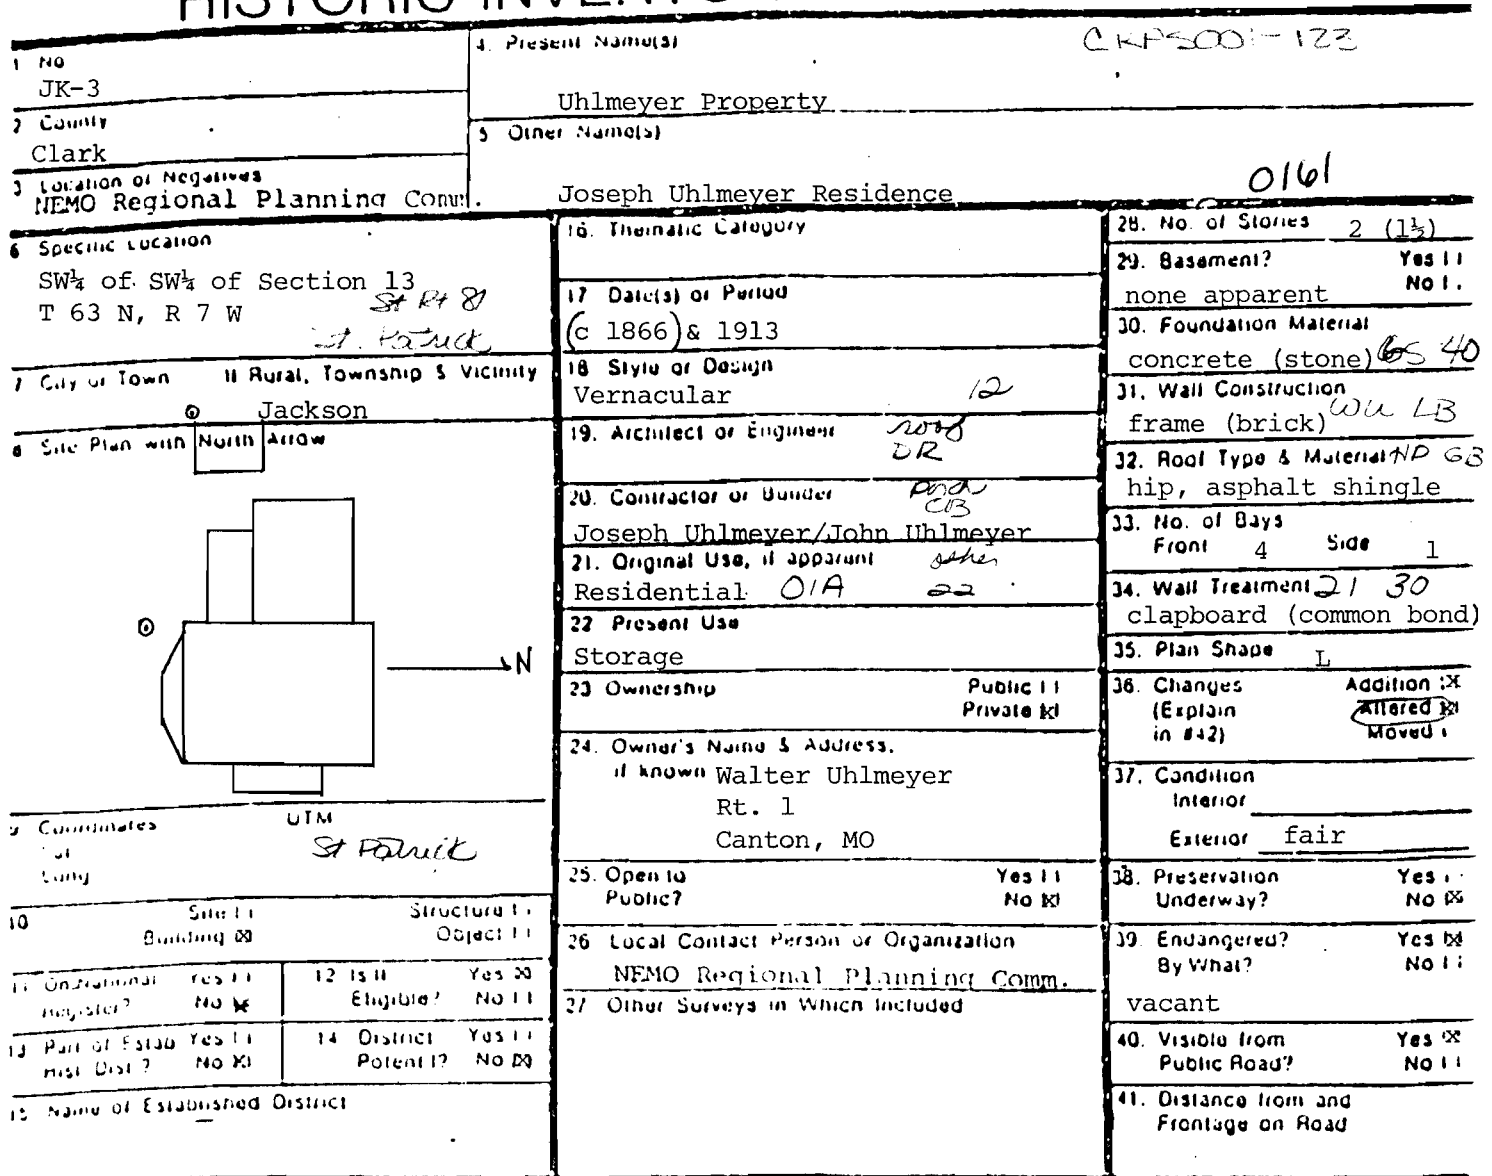 1 No
JK-3
2 County
Clark
3 Location of Negatives
NEMO Regional Planning Comm.
4. Present Name(s)
CKPS001-123
Uhlmeyer Property
5 Other Name(s)
Joseph Uhlmeyer Residence
0161
6 Specific Location
SW¼ of SW¼ of Section 13
T 63 N, R 7 W
St Rt 81
St. Patrick
7 City or Town If Rural, Township & Vicinity
Jackson
8 Site Plan with North Arrow
N
9 Coordinates UTM
Lat
Long
St Patrick
10 Site | |
Structure | |
Building [X]
Object | |
11 On National Register? Yes | | No [X]
12 Is It Eligible? Yes [X] No | |
13 Part of Estab Hist. Dist.? Yes | | No [X]
14 District Potent'l? Yes | | No [X]
15 Name of Established District
16. Thematic Category
17 Date(s) or Period
(c 1866) & 1913
18 Style or Design
Vernacular 12
19. Architect or Engineer
roof
DR
20. Contractor or Builder
porch
CB
Joseph Uhlmeyer/John Uhlmeyer
21. Original Use, if apparent
other
Residential 01A 22
22 Present Use
Storage
23 Ownership Public | |
Private [X]
24. Owner's Name & Address,
if known Walter Uhlmeyer
Rt. 1
Canton, MO
25. Open to Public? Yes | |
No [X]
26 Local Contact Person or Organization
NEMO Regional Planning Comm.
27 Other Surveys in Which Included
28. No. of Stories 2 (1½)
29. Basement? Yes | |
none apparent No |
30. Foundation Material
concrete (stone) 40
31. Wall Construction
frame (brick) WU LB
32. Roof Type & Material HP GB
hip, asphalt shingle
33. No. of Bays
Front 4 Side 1
34. Wall Treatment 21 30
clapboard (common bond)
35. Plan Shape L
36. Changes Addition [X]
(Explain Altered [X]
in #42) Moved |
37. Condition
Interior
Exterior fair
38. Preservation Yes
Underway? No [X]
39. Endangered? Yes [X]
By What? No | |
vacant
40. Visible from Yes [X]
Public Road? No | |
41. Distance from and
Frontage on Road